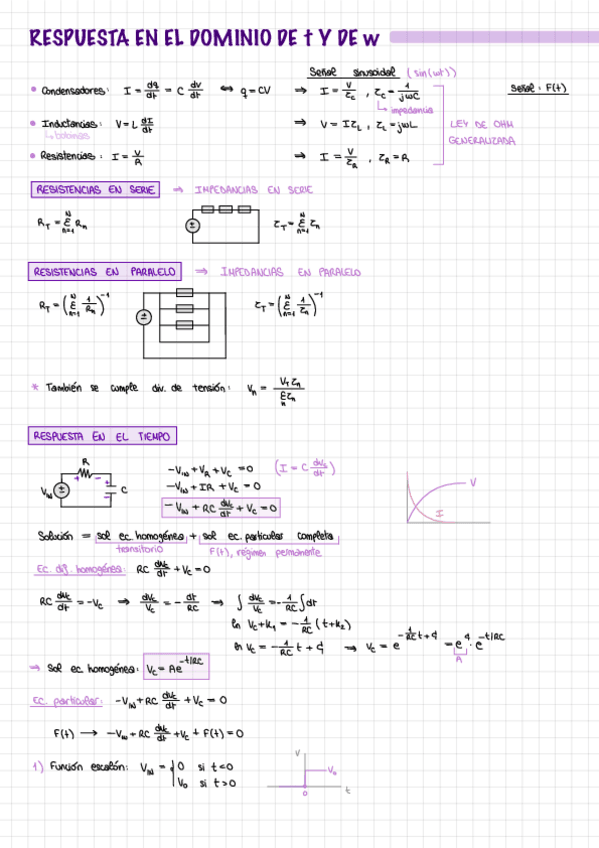 RESPUESTA EN EL DOMINIO DE t Y DE w
Señal sinusoidal (sin(wt))
Señal: F(t)
• Condensadores: I = dq/dt = C dV/dt ⇔ q = CV ⇒ I = V/Z_C , Z_C = 1/jωC
↳ impedancia
• Inductancias: V = L dI/dt ⇒ V = IZ_L , Z_L = jωL
↳ bobinas
LEY DE OHM
GENERALIZADA
• Resistencias: I = V/R ⇒ I = V/Z_R , Z_R = R
RESISTENCIAS EN SERIE ⇒ IMPEDANCIAS EN SERIE
R_T = Σ_{n=1}^{N} R_n
±
Z_T = Σ_{n=1}^{N} Z_n
RESISTENCIAS EN PARALELO ⇒ IMPEDANCIAS EN PARALELO
R_T = (Σ_{n=1}^{N} 1/R_n)^{-1}
±
Z_T = (Σ_{n=1}^{N} 1/Z_n)^{-1}
* También se cumple div. de tensión: V_n = V_T Z_n / Σ_n Z_n
RESPUESTA EN EL TIEMPO
R
V_IN ± + - + - C
-V_IN + V_R + V_C = 0 (I = C dV_C/dt)
-V_IN + IR + V_C = 0
-V_IN + RC dV_C/dt + V_C = 0
V
I
Solución = sol ec. homogénea + sol ec. particular completa
transitorio F(t), régimen permanente
Ec. dif. homogénea: RC dV_C/dt + V_C = 0
RC dV_C/dt = -V_C ⇒ dV_C/V_C = - dt/RC ⇒ ∫ dV_C/V_C = - 1/RC ∫ dt
ln V_C + k_1 = - 1/RC (t + k_2)
ln V_C = - 1/RC t + C_1 ⇒ V_C = e^{-1/RC t + C_1} = e^{C_1} · e^{-t/RC}
A
→ Sol ec. homogénea: V_C = Ae^{-t/RC}
Ec. particular: -V_IN + RC dV_C/dt + V_C = 0
F(t) → -V_IN + RC dV_C/dt + V_C + F(t) = 0
1) Función escalón: V_IN = { 0 si t<0
V_0 si t>0
V
V_0
0
t